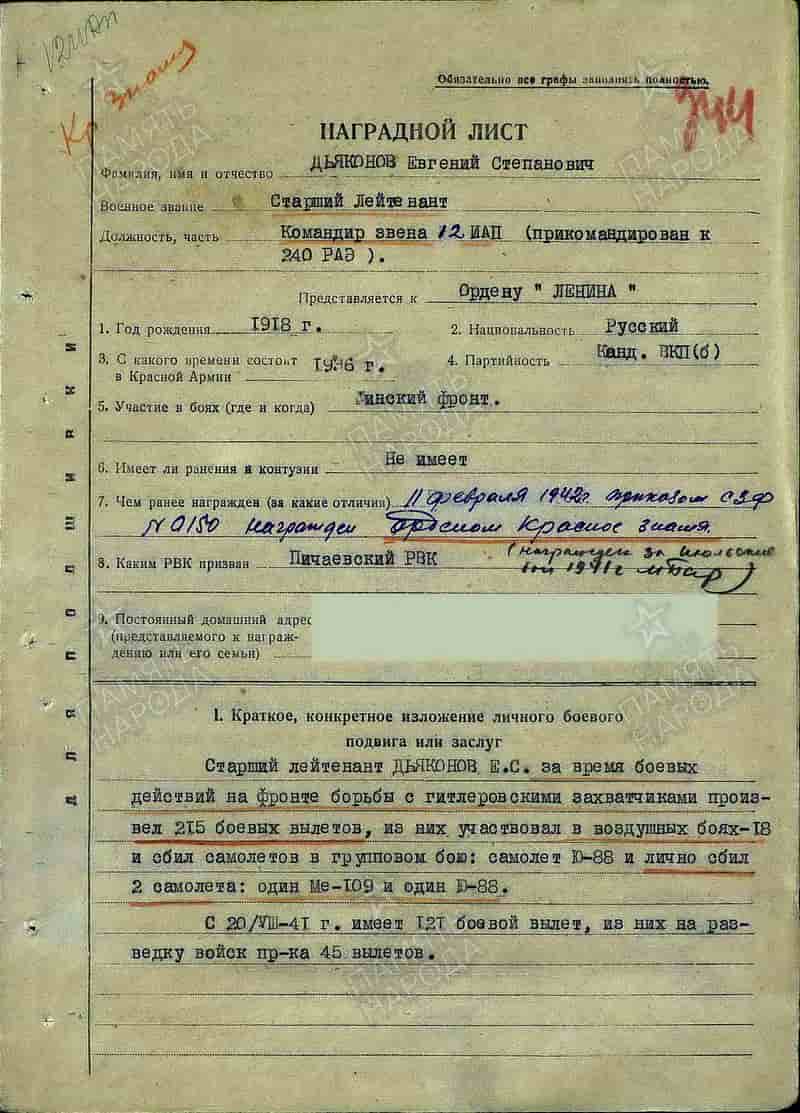 Кр знаму
Обязательно все графы заполнять полностью.
744
НАГРАДНОЙ ЛИСТ
Фамилия, имя и отчество ДЬЯКОНОВ Евгений Степанович
Военное звание Старший Лейтенант
Должность, часть Командир звена 12 ИАП (прикомандирован к
240 РАЭ ).
Представляется к Ордену " ЛЕНИНА "
1. Год рождения 1918 г. 2. Национальность Русский
3. С какого времени состоит
в Красной Армии 1936 г. 4. Партийность Канд. ВКП(б)
5. Участие в боях (где и когда) Финский фронт.
6. Имеет ли ранения и контузии Не имеет
7. Чем ранее награжден (за какие отличия) 11 февраля 1942г. приказом СЗФ
N 0150 награжден орденом Красное знамя.
8. Каким РВК призван Пичаевский РВК (награжден за
1941г
9. Постоянный домашний адрес
(представляемого к награж-
дению или его семьи)
I. Краткое, конкретное изложение личного боевого
подвига или заслуг
Старший лейтенант ДЬЯКОНОВ Е.С. за время боевых
действий на фронте борьбы с гитлеровскими захватчиками произ-
вел 215 боевых вылетов, из них участвовал в воздушных боях-18
и сбил самолетов в групповом бою: самолет Ю-88 и лично сбил
2 самолета: один Ме-109 и один Ю-88.
С 20/УШ-41 г. имеет 121 боевой вылет, из них на раз-
ведку войск пр-ка 45 вылетов.
ПАМЯТЬ НАРОДА